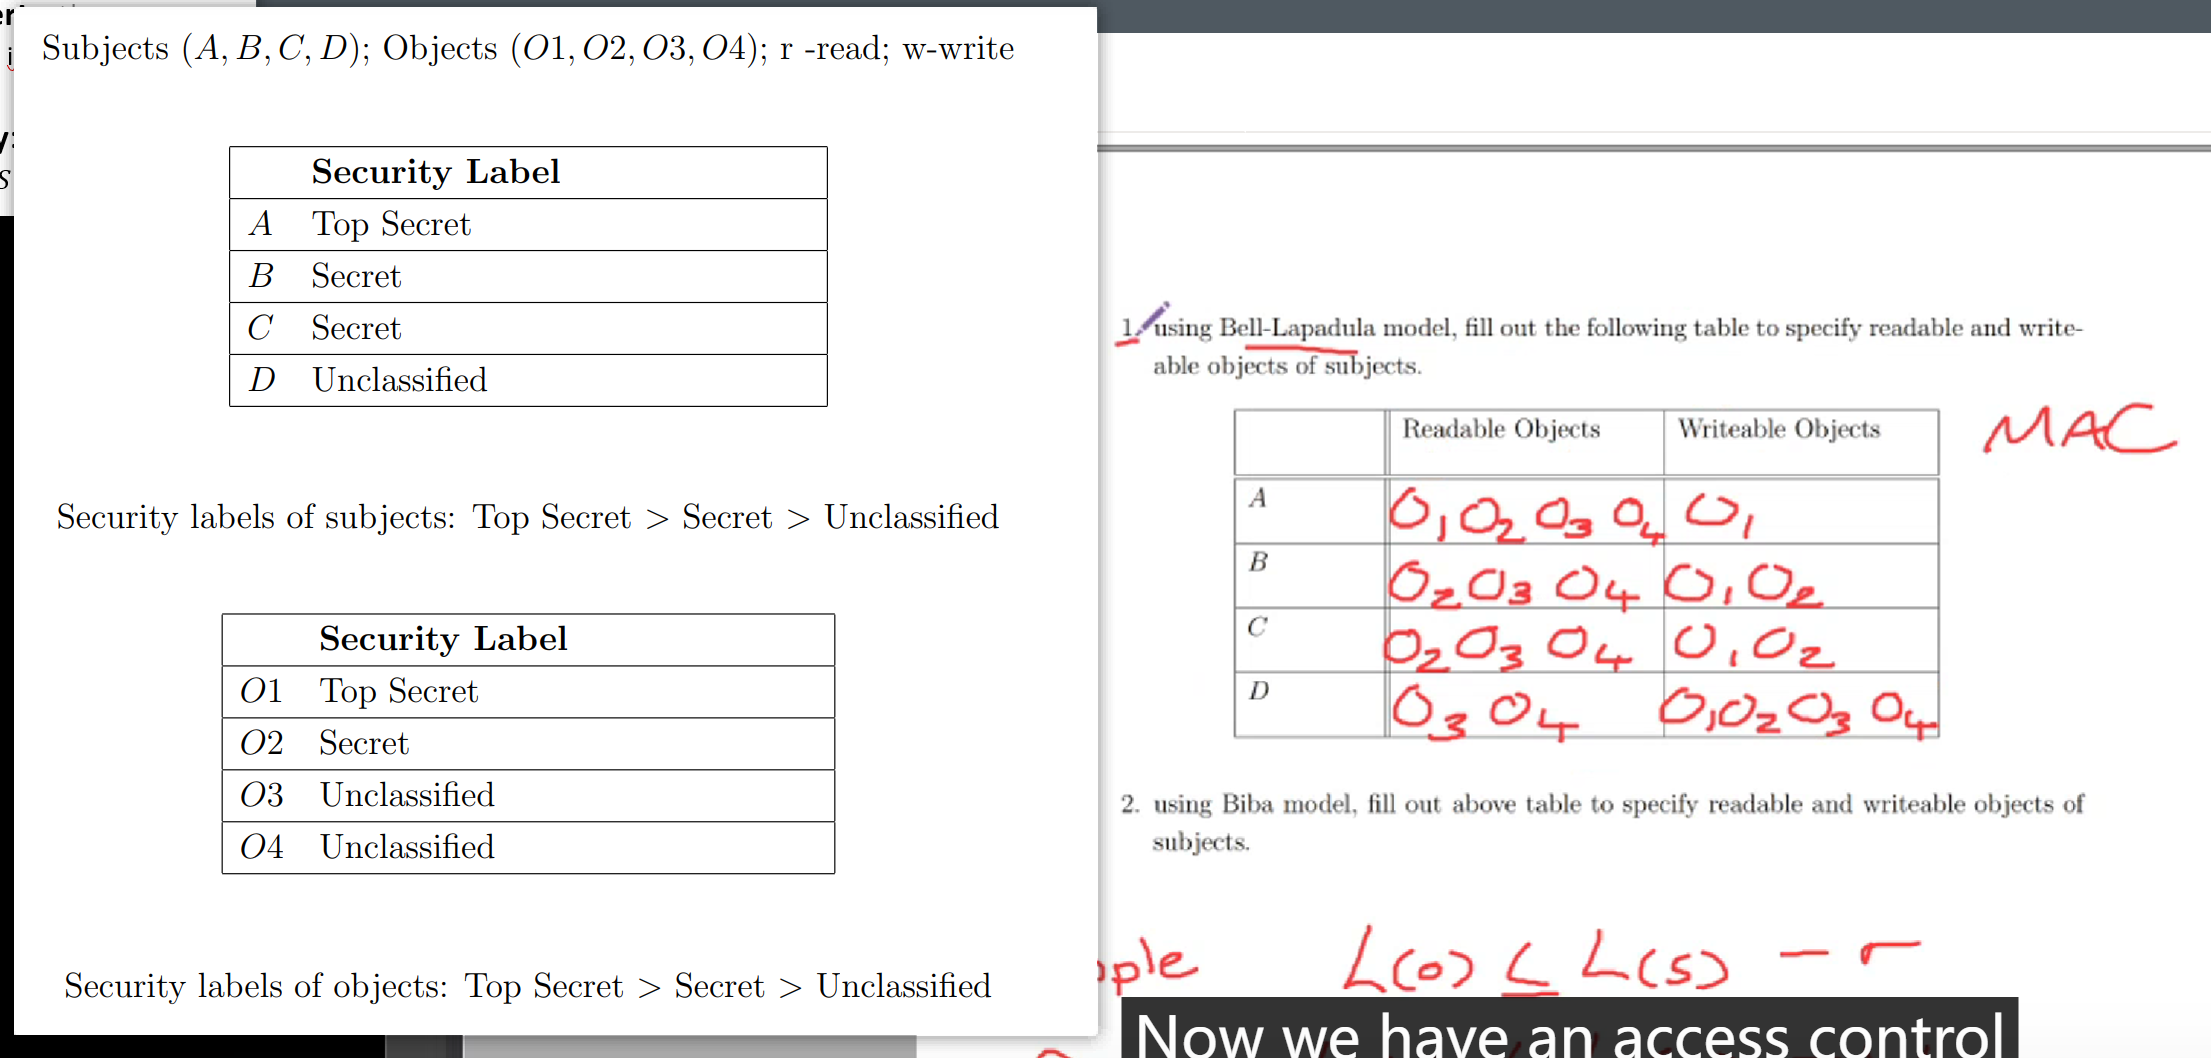 Subjects (A, B, C, D); Objects (O1, O2, O3, O4); r -read; w-write
Security Label
A Top Secret
B Secret
C Secret
D Unclassified
Security labels of subjects: Top Secret > Secret > Unclassified
Security Label
O1 Top Secret
O2 Secret
O3 Unclassified
O4 Unclassified
Security labels of objects: Top Secret > Secret > Unclassified
1. using Bell-Lapadula model, fill out the following table to specify readable and write-
able objects of subjects.
Readable Objects Writeable Objects
MAC
A O1 O2 O3 O4 O1
B O2 O3 O4 O1 O2
C O2 O3 O4 O1 O2
D O3 O4 O1 O2 O3 O4
2. using Biba model, fill out above table to specify readable and writeable objects of
subjects.
L(o) ≤ L(s) - r
Now we have an access control